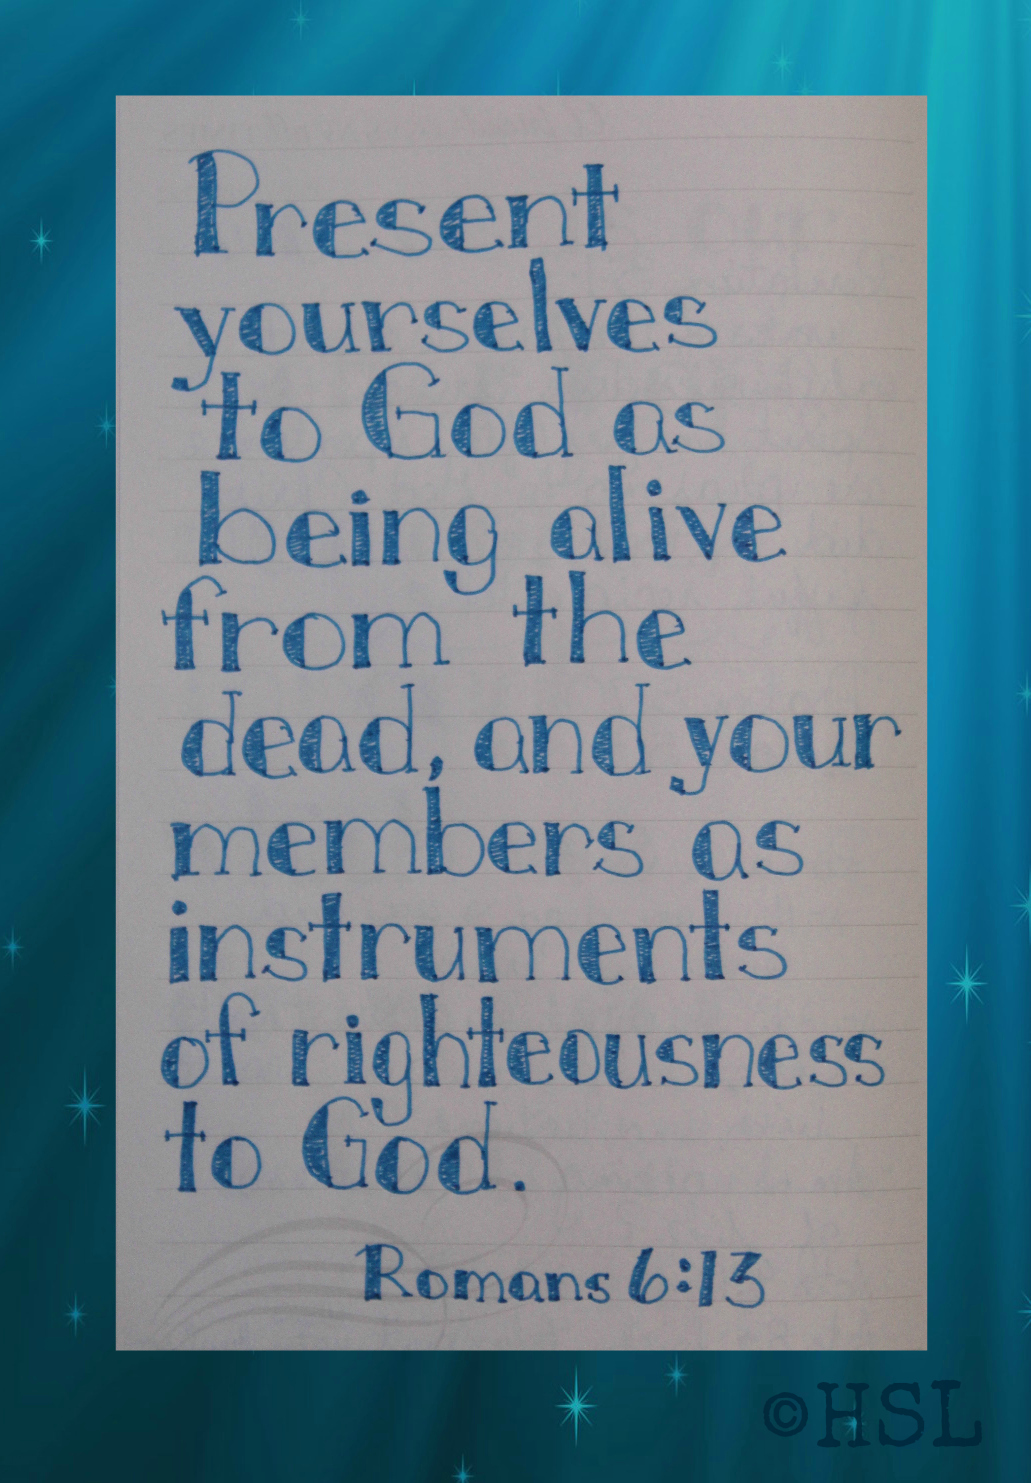 Present
yourselves
to God as
being alive
from the
dead, and your
members as
instruments
of righteousness
to God.
Romans 6:13
©HSL